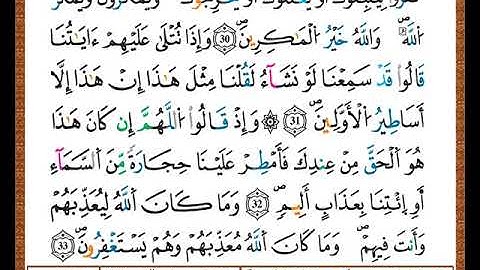 اللَّهُ ۖ وَاللَّهُ خَيْرُ الْمَاكِرِينَ ۝30 وَإِذَا تُتْلَىٰ عَلَيْهِمْ ءَايَاتُنَا
قَالُوا قَدْ سَمِعْنَا لَوْ نَشَآءُ لَقُلْنَا مِثْلَ هَٰذَا إِنْ هَٰذَا إِلَّا
أَسَاطِيرُ الْأَوَّلِينَ ۝31 ۞ وَإِذْ قَالُوا اللَّهُمَّ إِن كَانَ هَٰذَا
هُوَ الْحَقَّ مِنْ عِندِكَ فَأَمْطِرْ عَلَيْنَا حِجَارَةً مِّنَ السَّمَآءِ
أَوِ ائْتِنَا بِعَذَابٍ أَلِيمٍ ۝32 وَمَا كَانَ اللَّهُ لِيُعَذِّبَهُمْ
وَأَنتَ فِيهِمْ ۖ وَمَا كَانَ اللَّهُ مُعَذِّبَهُمْ وَهُمْ يَسْتَغْفِرُونَ ۝33